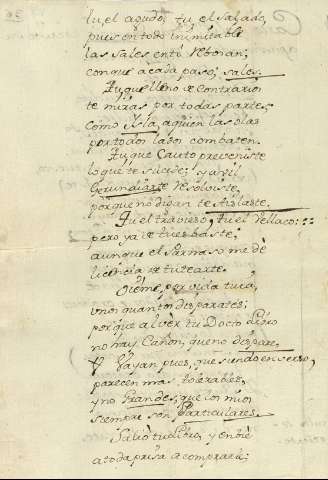 tu el agudo, tu el salado,
pues en todo inimitable
las sales en ti rebosan;
con que à cada paso, sales.
Tu que lleno de contrarios
te miras por todas partes,
como Isla, aquien las olas
por todos lados combaten.
Tu que Cauto preveniste
lo que te sucede; y assi
Gerundiarte resolviste,
porque no digan te Aislaste.
Tu el travieso, tu el vellaco:::
pero ya se tuesbaste;
aunque el Parnaso me dè
licencia de tutearte.
Oieme, por vida tuia,
unos quantos disparates;
porque al vèr tu Docto Libro
no hay Cañon, que no dispare.
Y Vayan pues, que siendo en verso,
parecen mas tolerables,
y no Grandes; que los mios
siempre son Particulares.
Saliò tu Libro, y embiè
a toda prisa a comprarle: